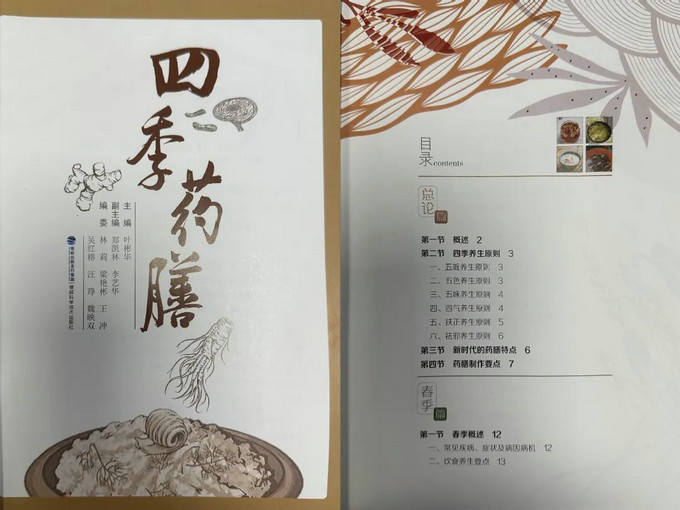 四季药膳
主编 叶彬华
副主编 郑凯林 李艺华
编委 林莉 梁艳彬 王冲
吴红榕 汪琤 魏映双
福建科学技术出版社
目录 contents
总论篇
第一节 概述 2
第二节 四季养生原则 3
一、五脏养生原则 3
二、五色养生原则 3
三、五味养生原则 4
四、四气养生原则 4
五、扶正养生原则 5
六、祛邪养生原则 6
第三节 新时代的药膳特点 6
第四节 药膳制作要点 7
春季篇
第一节 春季概述 12
一、常见疾病、症状及病因病机 12
二、饮食养生要点 13